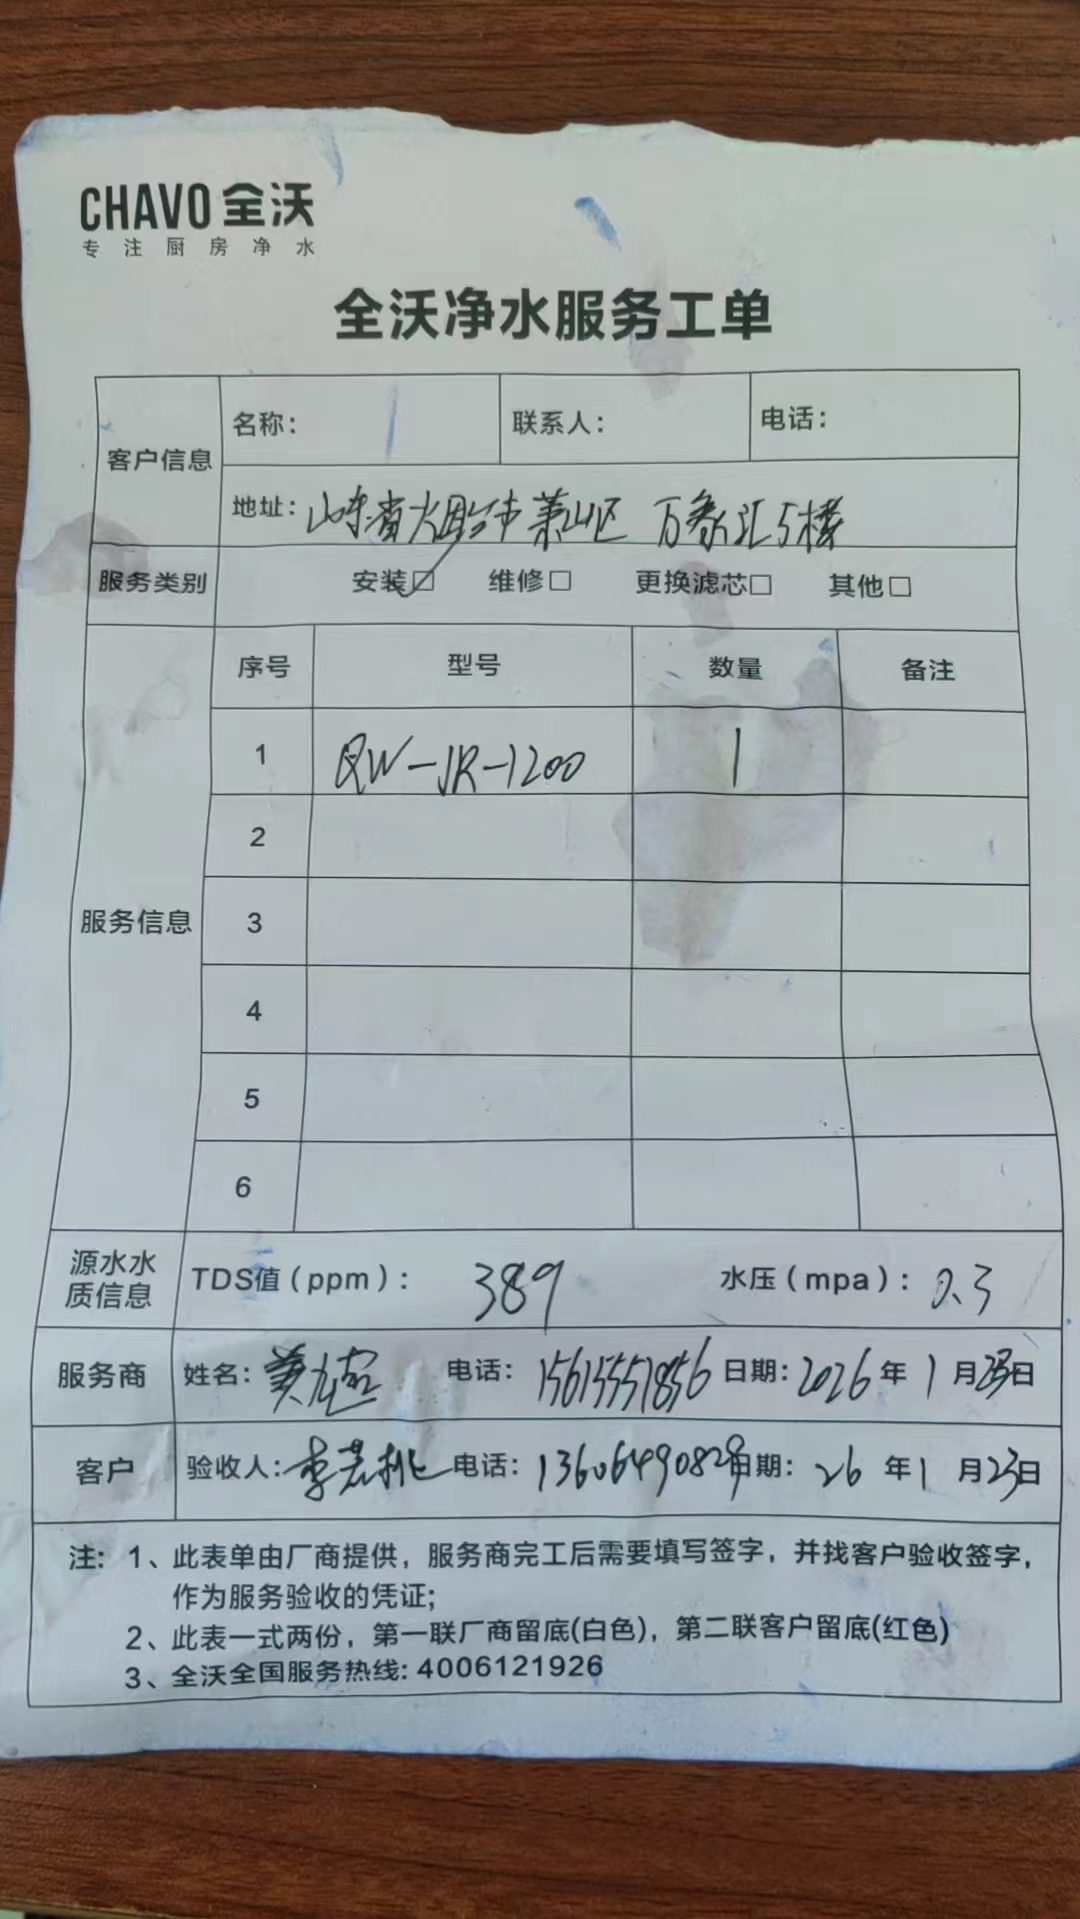 CHAVO 全沃
专注厨房净水
全沃净水服务工单
客户信息 名称: 联系人: 电话:
地址: 山东省烟台市莱山区 万象汇5楼
服务类别 安装☑ 维修□ 更换滤芯□ 其他□
服务信息 序号 型号 数量 备注
1 QW-JR-1200 1
2
3
4
5
6
源水水质信息 TDS值(ppm): 389 水压(mpa): 0.3
服务商 姓名: 电话: 15615551856 日期: 2026年1月23日
客户 验收人: 李 电话: 13606490829 日期: 26年1月23日
注: 1、此表单由厂商提供，服务商完工后需要填写签字，并找客户验收签字，
作为服务验收的凭证;
2、此表一式两份，第一联厂商留底(白色)，第二联客户留底(红色)
3、全沃全国服务热线: 4006121926